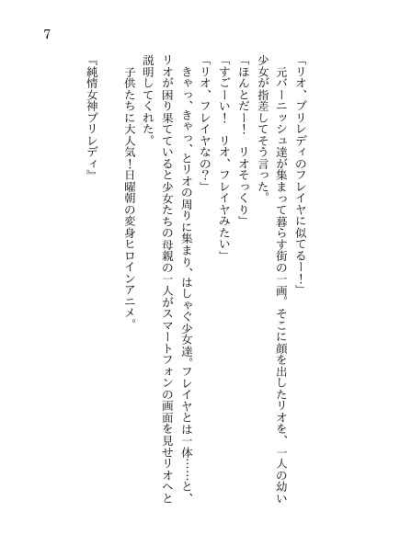 7
「リオ、プリレディのフレイヤに似てるー！」
元バーニッシュ達が集まって暮らす街の一画。そこに顔を出したリオを、一人の幼い
少女が指差してそう言った。
「ほんとだー！　リオそっくり」
「すごーい！　リオ、フレイヤみたい」
「リオ、フレイヤなの？」
きゃっ、きゃっ、とリオの周りに集まり、はしゃぐ少女達。フレイヤとは一体……と、
リオが困り果てていると少女たちの母親の一人がスマートフォンの画面を見せリオへと
説明してくれた。
子供たちに大人気！日曜朝の変身ヒロインアニメ。
『純情女神プリレディ』